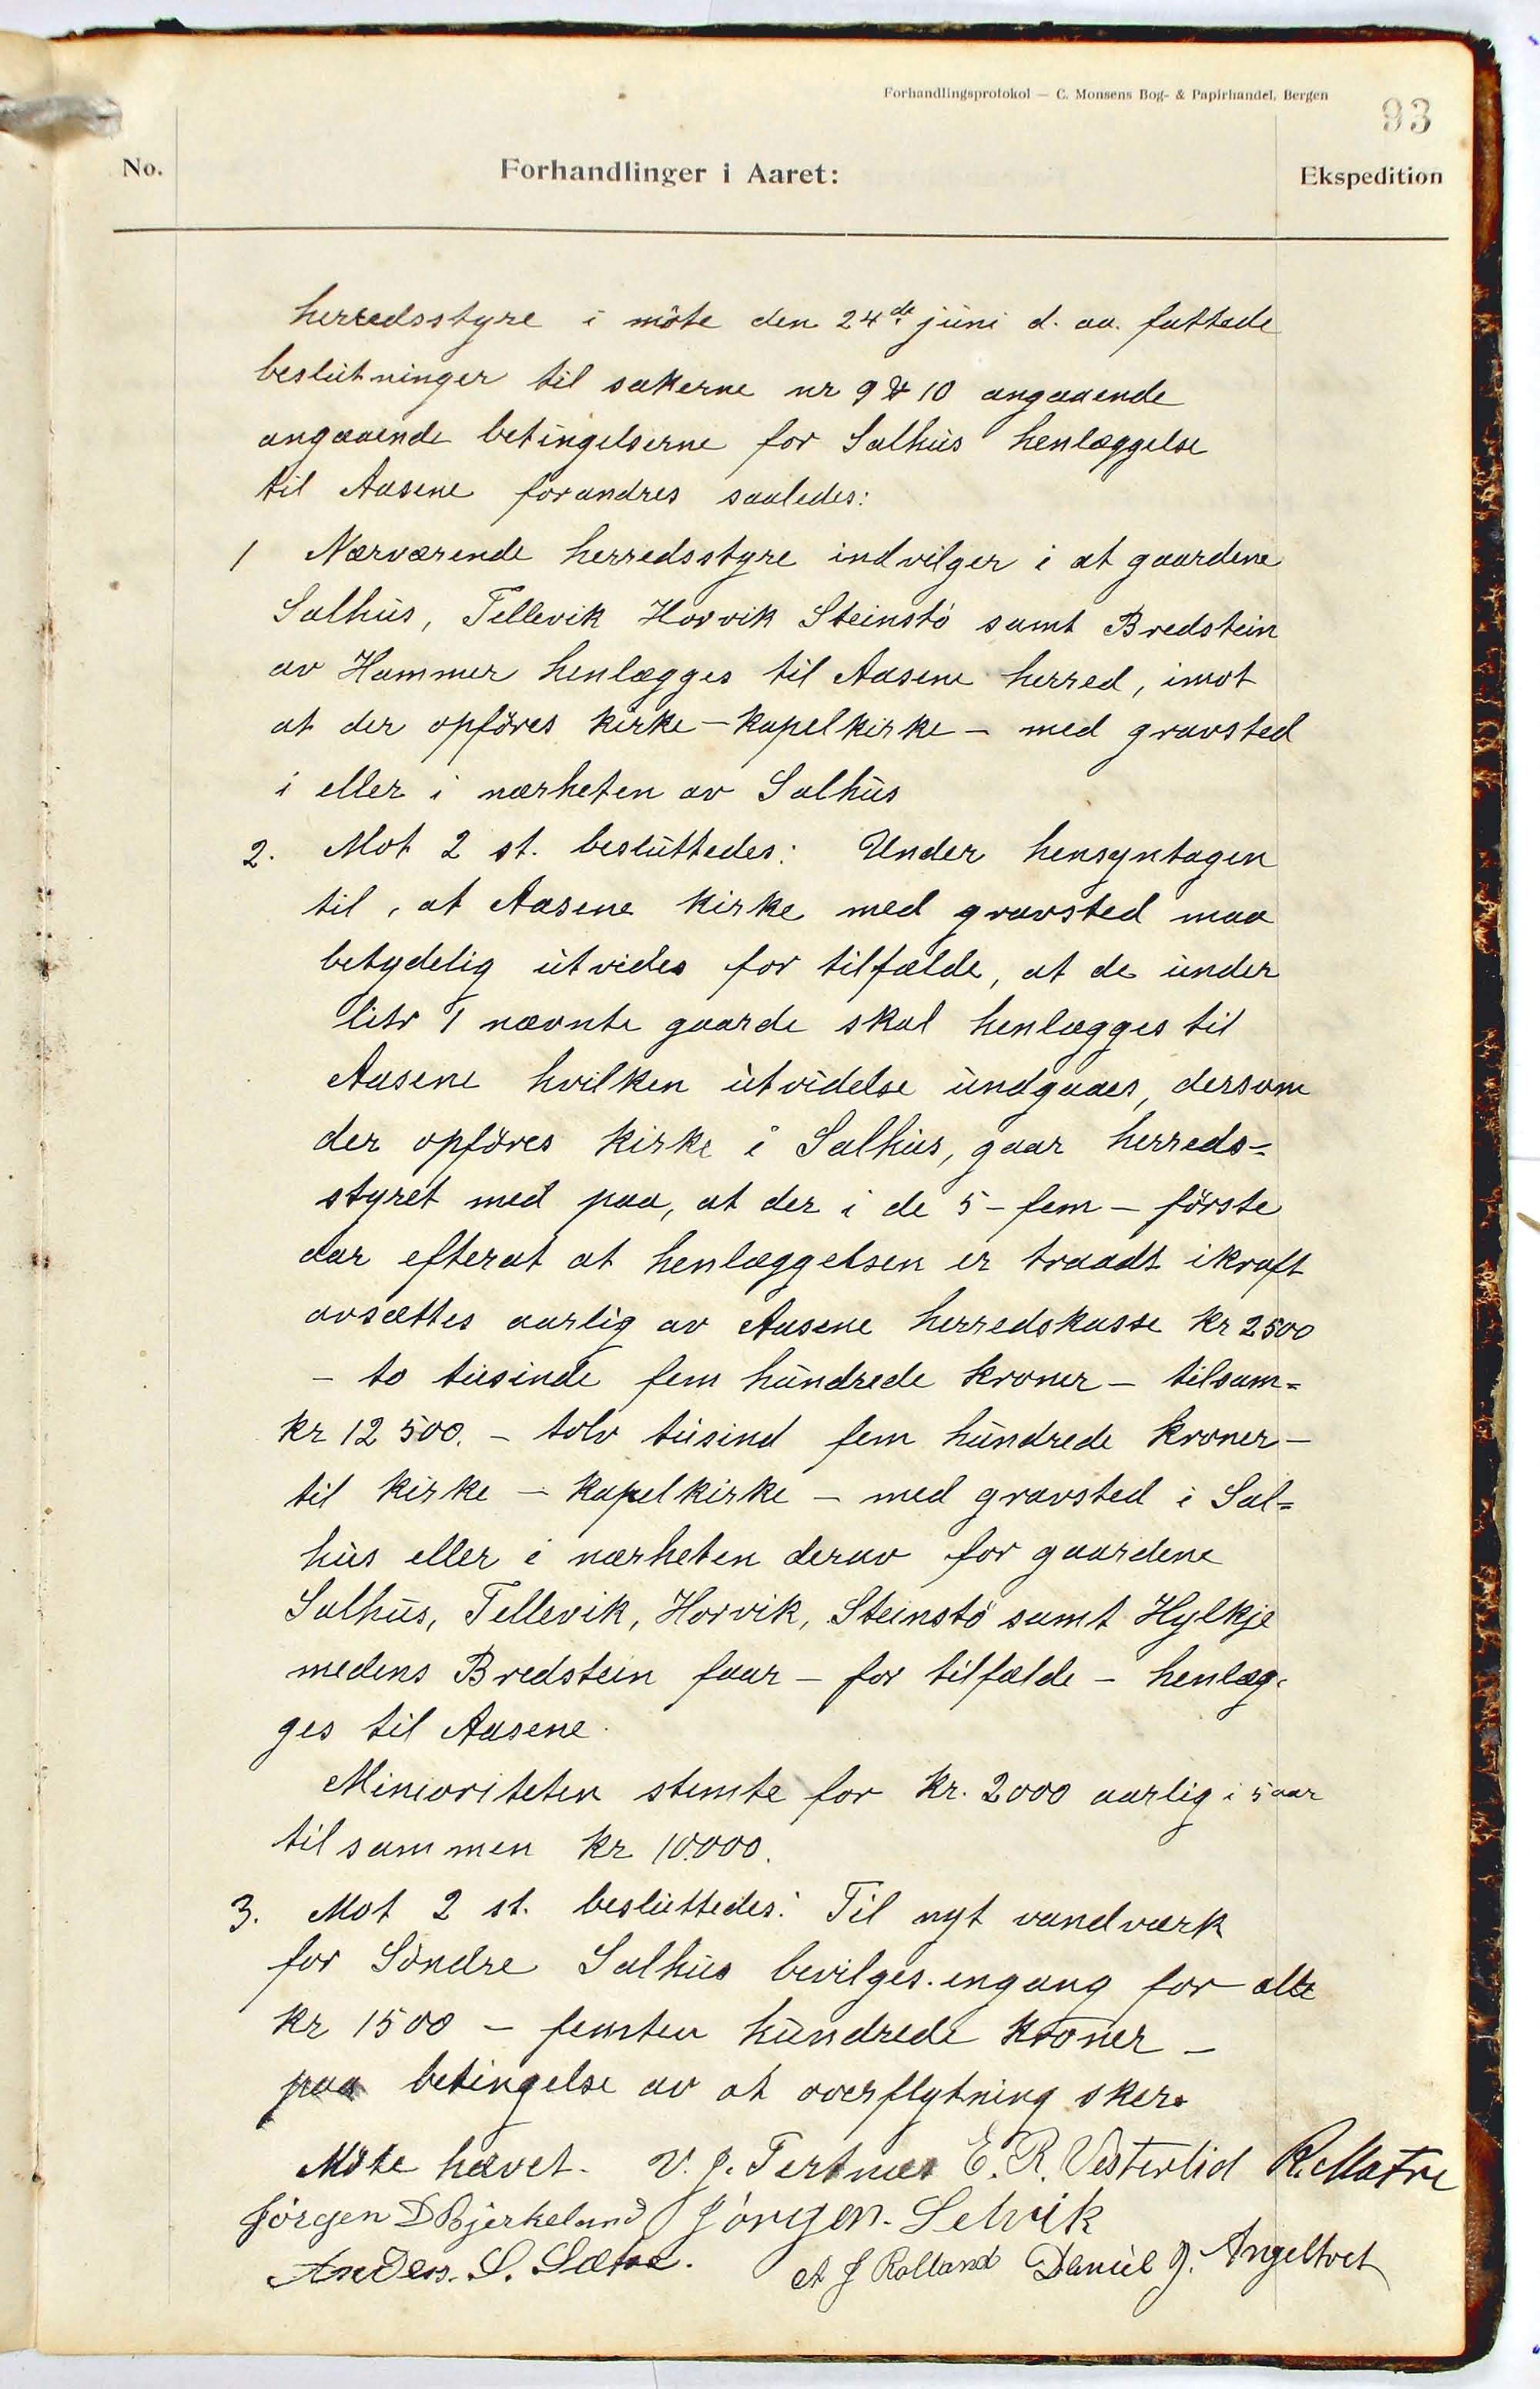 Forhandlingsprotokol — C. Monsens Bog- & Papirhandel, Bergen
93
No.
Forhandlinger i Aaret:
Ekspedition
herredsstyre i møte den 24de juni d. aa. fattede
beslutninger til sakerne nr 9 & 10 angaaende
angaaende betingelserne for Salhus henlæggelse
til Aasene forandres saaledes:
1 Nærværende herredsstyre indvilger i at gaardene
Salhus, Tellevik Horvik Steinstö samt Bredstein
av Hammer henlægges til Aasene herred, imot
at der opföres kirke – kapelkirke – med gravsted
i eller i nærheten av Salhus
2. Mot 2 st. besluttedes: Under hensyntagen
til, at Aasene kirke med gravsted maa
betydelig utvides for tilfælde, at de under
litr 1 nævnte gaarde skal henlægges til
Aasene hvilken utvidelse undgaaes, dersom
der opföres kirke i Salhus, gaar herreds=
styret med paa, at der i de 5 – fem – förste
aar efterat at henlæggelsen er traadt ikraft
avsættes aarlig av Aasene herredskasse kr 2500
– to tusinde fem hundrede kroner – tilsam=
kr 12 500. – tolv tusind fem hundrede kroner –
til kirke – kapelkirke – med gravsted i Sal=
hus eller i nærheten derav for gaardene
Salhus, Tellevik, Horvik, Steinstö samt Hylkje
medens Bredstein faar – for tilfælde – henlæg=
ges til Aasene.
Minioriteten stemte for kr. 2000 aarlig i 5 aar
tilsammen kr 10000.
3. Mot 2 st. besluttedes: Til nyt vandværk
for Söndre Salhus bevilges engang for alle
kr 1500 – femten hundrede kroner –
paa betingelse av at overflytning sker.
Möte hævet. V. J. Tertnes E. R. Vesterlid R. Matre
Jörgen D Bjerkeland Jörgen. Selvik
Anders. S. Sætre. A J Rolland Daniel J. Angeltvet